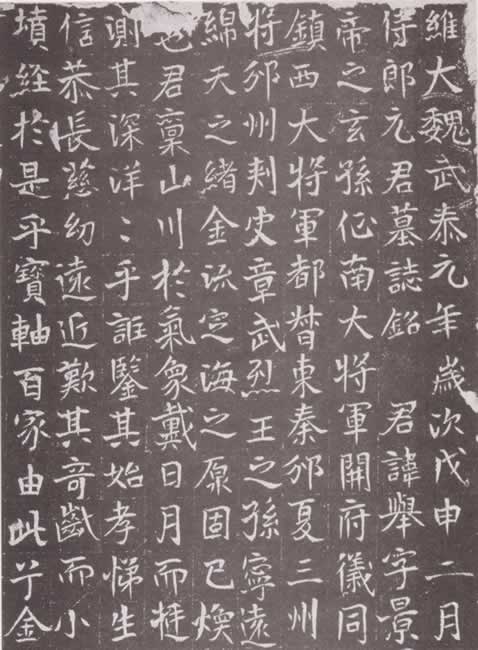 維大魏武泰元年歲次戊申二月
侍郎元君墓誌銘 君諱舉字景
帝之玄孫征南大將軍開府儀同
鎮西大將軍都督東秦邠夏三州
將邠州刺史章武烈王之孫寧遠
綿天之緒金流定海之原固已煥
也君稟山川於氣象戴日月而挺
測其深洋〻乎誰鑒其始孝悌生
信恭長慈幼遠近歎其奇齔而小
墳經於是乎寶軸百家由此兮金